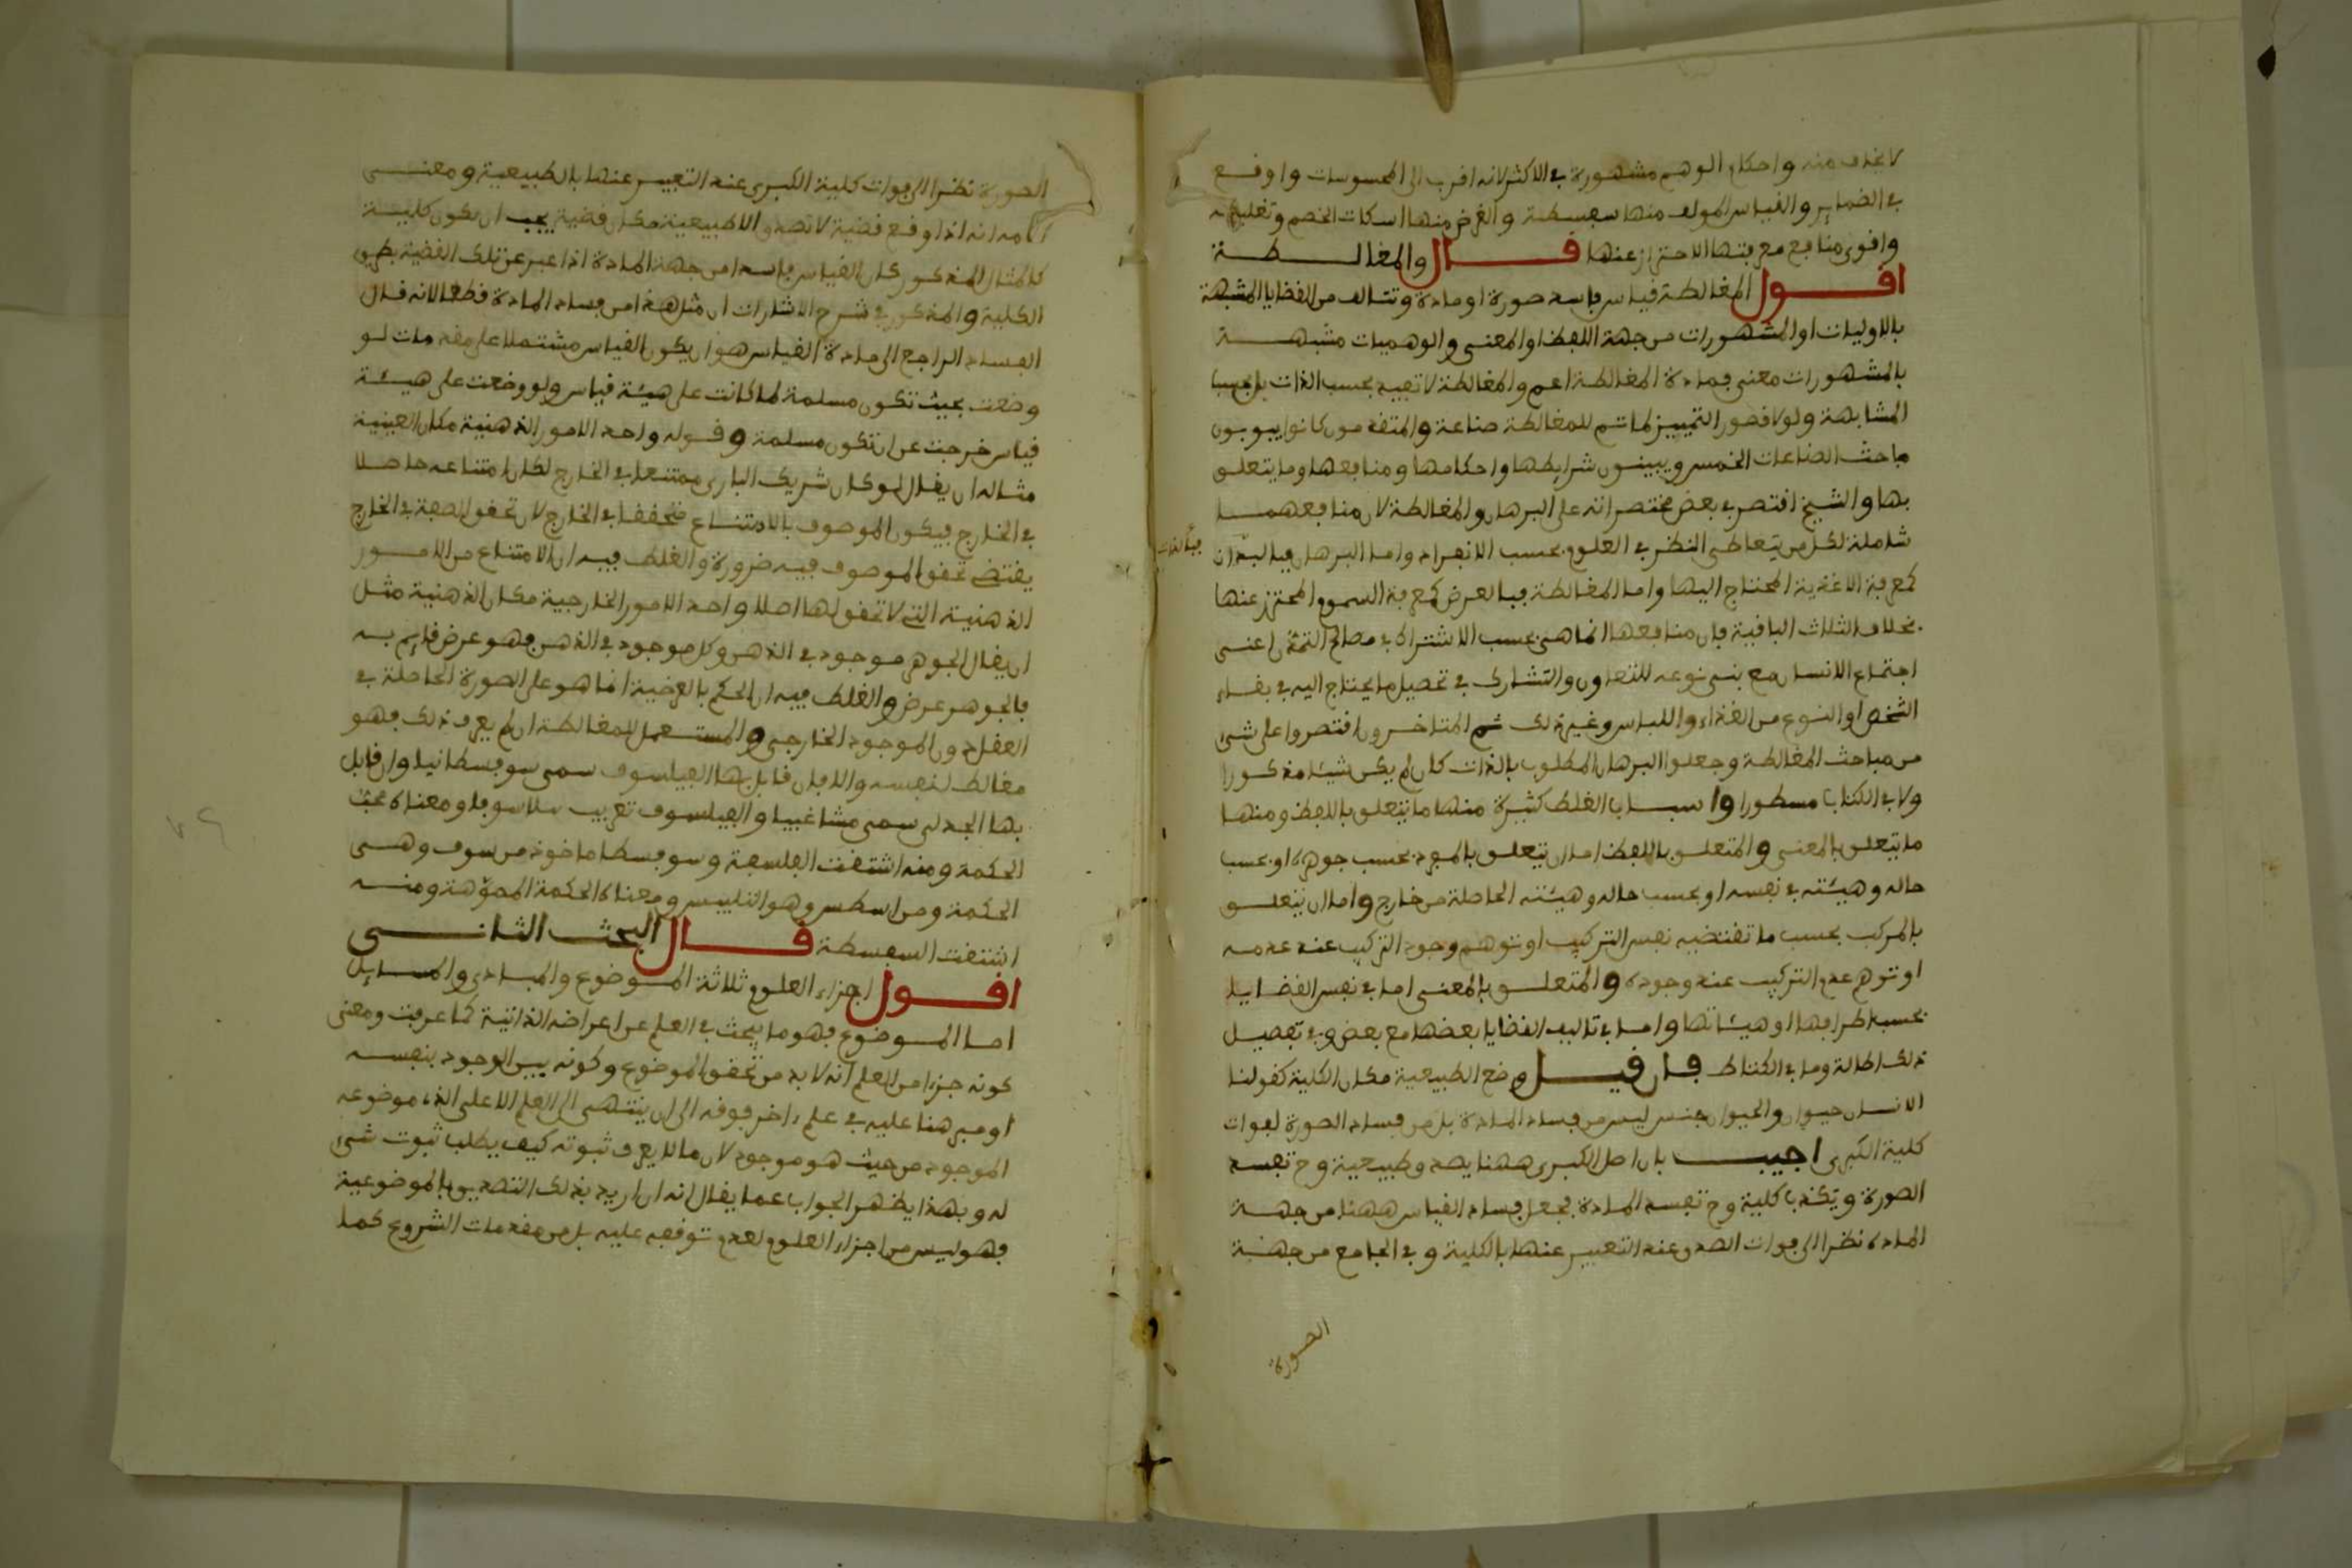 لا يخاف منه واحكام الوهم مشهورة في الاكثر لانه اقرب الى المحسوسات واوقع
في الضماير والقياس المولف منها سفسطة والغرض منها اسكات الخصم وتغليطه
واقوى منافع معرفتها الاحتراز عنها قال والمغالطة
اقول المغالطة قياس فاسد صورة او مادة وتتالف من القضايا المشبهة
بالاوليات او المشهورات من جهة اللفظ او المعنى والوهميات مشبهة
بالمشهورات معنى فمادة المغالطة اعم والمغالطة لا تفيد بحسب الذات بل بحسب
المشابهة ولولا قصور التمييز لما تم للمغالطة صناعة والمتقدمون كانوا يبوبون
مباحث الصناعات الخمس ويبينون شرايطها واحكامها ومنافعها وما يتعلق
بها والشيخ اقتصر في بعض مختصراته على البرهان والمغالطة لان منافعهما
شاملة لكل من يتعاطى النظر في العلوم بحسب الانفراد واما البرهان فبالذات
كمعرفة الاغذية المحتاج اليها واما المغالطة فبالعرض كمعرفة السموم المحترز عنها
بخلاف الثلاث الباقية فان منافعها انما هي بحسب الاشتراك في مصالح التمدن اعنى
اجتماع الانسان مع بني نوعه للتعاون والتشارك في تحصيل ما يحتاج اليه في بقاء
الشخص او النوع من الغذاء واللباس وغير ذلك ثم المتاخرون اقتصروا على شيء
من مباحث المغالطة وجعلوا البرهان المطلوب بالذات كان لم يكن شيئا مذكورا
ولا في الكتاب مسطورا واسباب الغلط كثيرة منها ما يتعلق باللفظ ومنها
ما يتعلق بالمعنى والمتعلق باللفظ اما ان يتعلق بالمفرد بحسب جوهره او بحسب
حاله وهيئته في نفسه او بحسب حاله وهيئته الحاصلة من خارج واما ان يتعلق
بالمركب بحسب ما تقتضيه نفس التركيب او توهم وجود التركيب عند عدمه
او توهم عدم التركيب عند وجوده والمتعلق بالمعنى اما في نفس القضايا
بحسب اطرافها او هيئاتها واما في تاليف القضايا بعضها مع بعض وفي تفصيل
ذلك اطالة وما في الكتاب ط فان قيل وضع الطبيعية مكان الكلية كقولنا
الانسان حيوان والحيوان جنس ليس من فساد المادة بل من فساد الصورة لفوات
كلية الكبرى اجيب بان اصل الكبرى ههنا يصدق طبيعية وح تفسد
الصورة ويكذب كلية وح تفسد المادة فجعل فساد القياس ههنا من جهة
المادة نظرا الى فوات الصدق عند التعبير عنها بالكلية وفي الجامع من جهة
الصورة
الصورة نظرا الى فوات كلية الكبرى عند التعبير عنها بالطبيعية ومعنى
انه اذا وقع قضية لا تصدق الا طبيعية مكان قضية يجب ان يكون كلية
كالمثال المذكور كان القياس فاسدا من جهة المادة اذا عبر عن تلك القضية بطريق
الكلية والمذكور في شرح الاشارات ان مثل هذا من فساد المادة قطعا لانه قال
الفساد الراجع الى مادة القياس هو ان يكون القياس مشتملا على مقدمات لو
وضعت بحيث تكون مسلمة لما كانت على هيئة قياس ولو وضعت على هيئة
قياس خرجت عن ان تكون مسلمة وقوله واحد الامور الذهنية مكان العينية
مثاله ان يقال لو كان شريك الباري ممتنعا في الخارج لكان امتناعه حاصلا
في الخارج فيكون الموصوف بالامتناع متحققا في الخارج لان تحقق الصفة في الخارج
يقتضي تحقق الموصوف فيه ضرورة والغلط فيه ان الامتناع من الامور
الذهنية التي لا تحقق لها اصلا واحد الامور الخارجية مكان الذهنية مثل
ان يقال الجوهر موجود في الذهن وكل موجود في الذهن فهو عرض قايم به
فالجوهر عرض والغلط فيه ان الحكم بالعرضية انما هو على الصورة الحاصلة في
العقل دون الموجود الخارجي والمستعمل للمغالطة ان لم يعرف ذلك فهو
مغالط لنفسه والا فان قابل بها الفيلسوف سمى سوفسطائيا وان قابل
بها الجدلي سمى مشاغبيا والفيلسوف تعريب فلاسوفا ومعناه محب
الحكمة ومنه اشتقت الفلسفة وسوفسطا ماخوذ من سوف وهي
الحكمة ومن اسطس وهو التلبيس ومعناه الحكمة المموهة ومنه
اشتقت السفسطة قال البحث الثاني
اقول اجزاء العلوم ثلاثة الموضوع والمبادي والمسايل
اما الموضوع فهو ما يبحث في العلم عن اعراضه الذاتية كما عرفت ومعنى
كونه جزءا من العلم انه لا بد من تحقق الموضوع وكونه بين الوجود بنفسه
او مبرهنا عليه في علم اخر فوقه الى ان ينتهى الى العلم الاعلى الذي موضوعه
الموجود من حيث هو موجود لان ما لا يعرف ثبوته كيف يطلب ثبوت شيء
له وبهذا يظهر الجواب عما يقال انه ان اريد بذلك التصديق بالموضوعية
فهو ليس من اجزاء العلوم لعدم توقفه عليه بل من مقدمات الشروع كما